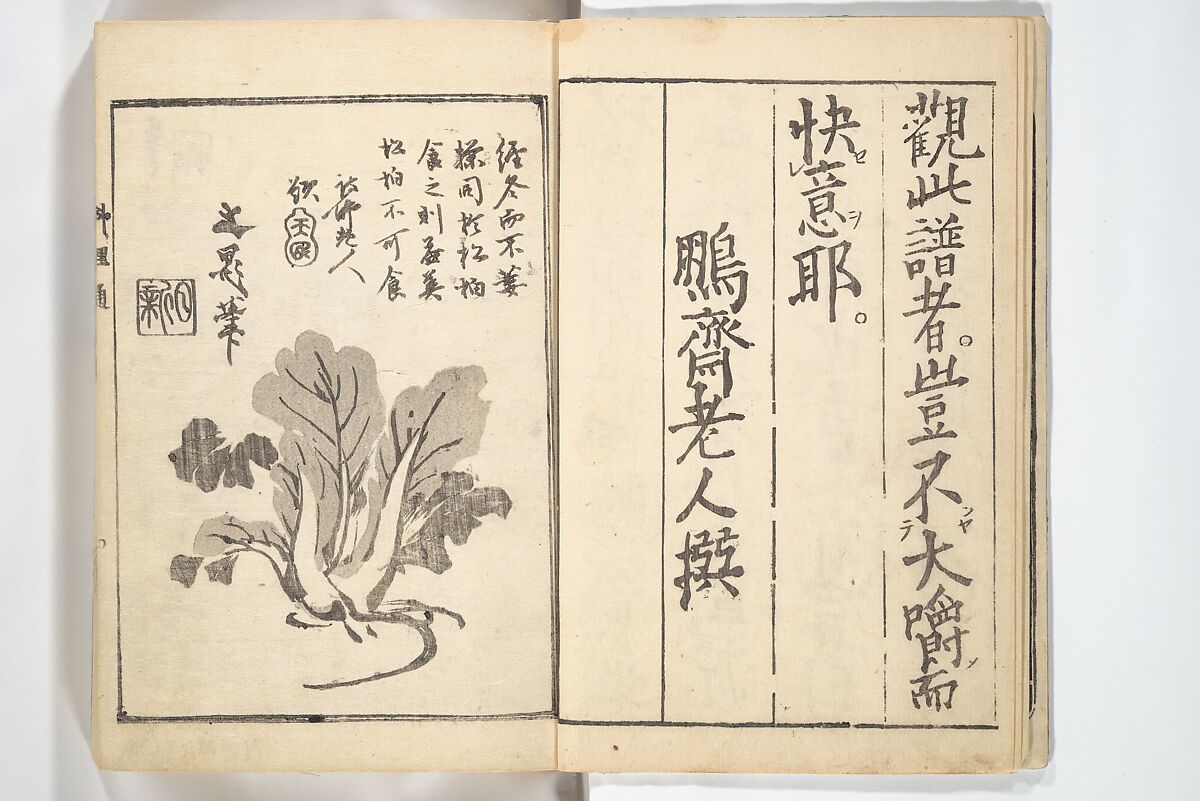 觀此譜者。豈不大嚼而
快意耶。
鵬齋老人撰
經冬而不萎
操同於松柏
食之則美
松柏不可食
詩佛老人
天民
文晁筆
料理通